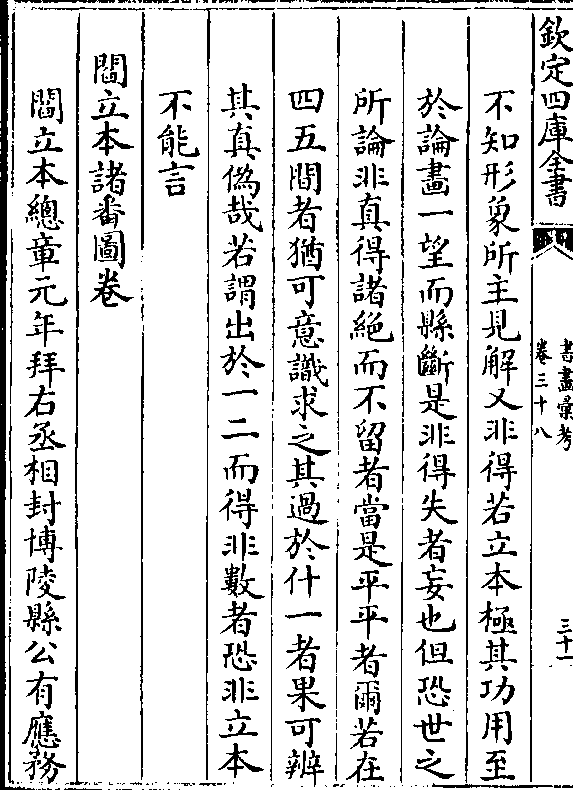 欽定四庫全書
書畫彙考
卷三十八
三十一
不知形象所主見解又非得若立本極其功用至
於論畫一望而縣斷是非得失者妄也但恐世之
所論非真得諸絶而不留者當是平平者爾若在
四五間者猶可意識求之其過於什一者果可辨
其真偽哉若謂出於一二而得非數者恐非立本
不能言
閻立本諸番圖卷
閻立本總章元年拜右丞相封博陵縣公有應務